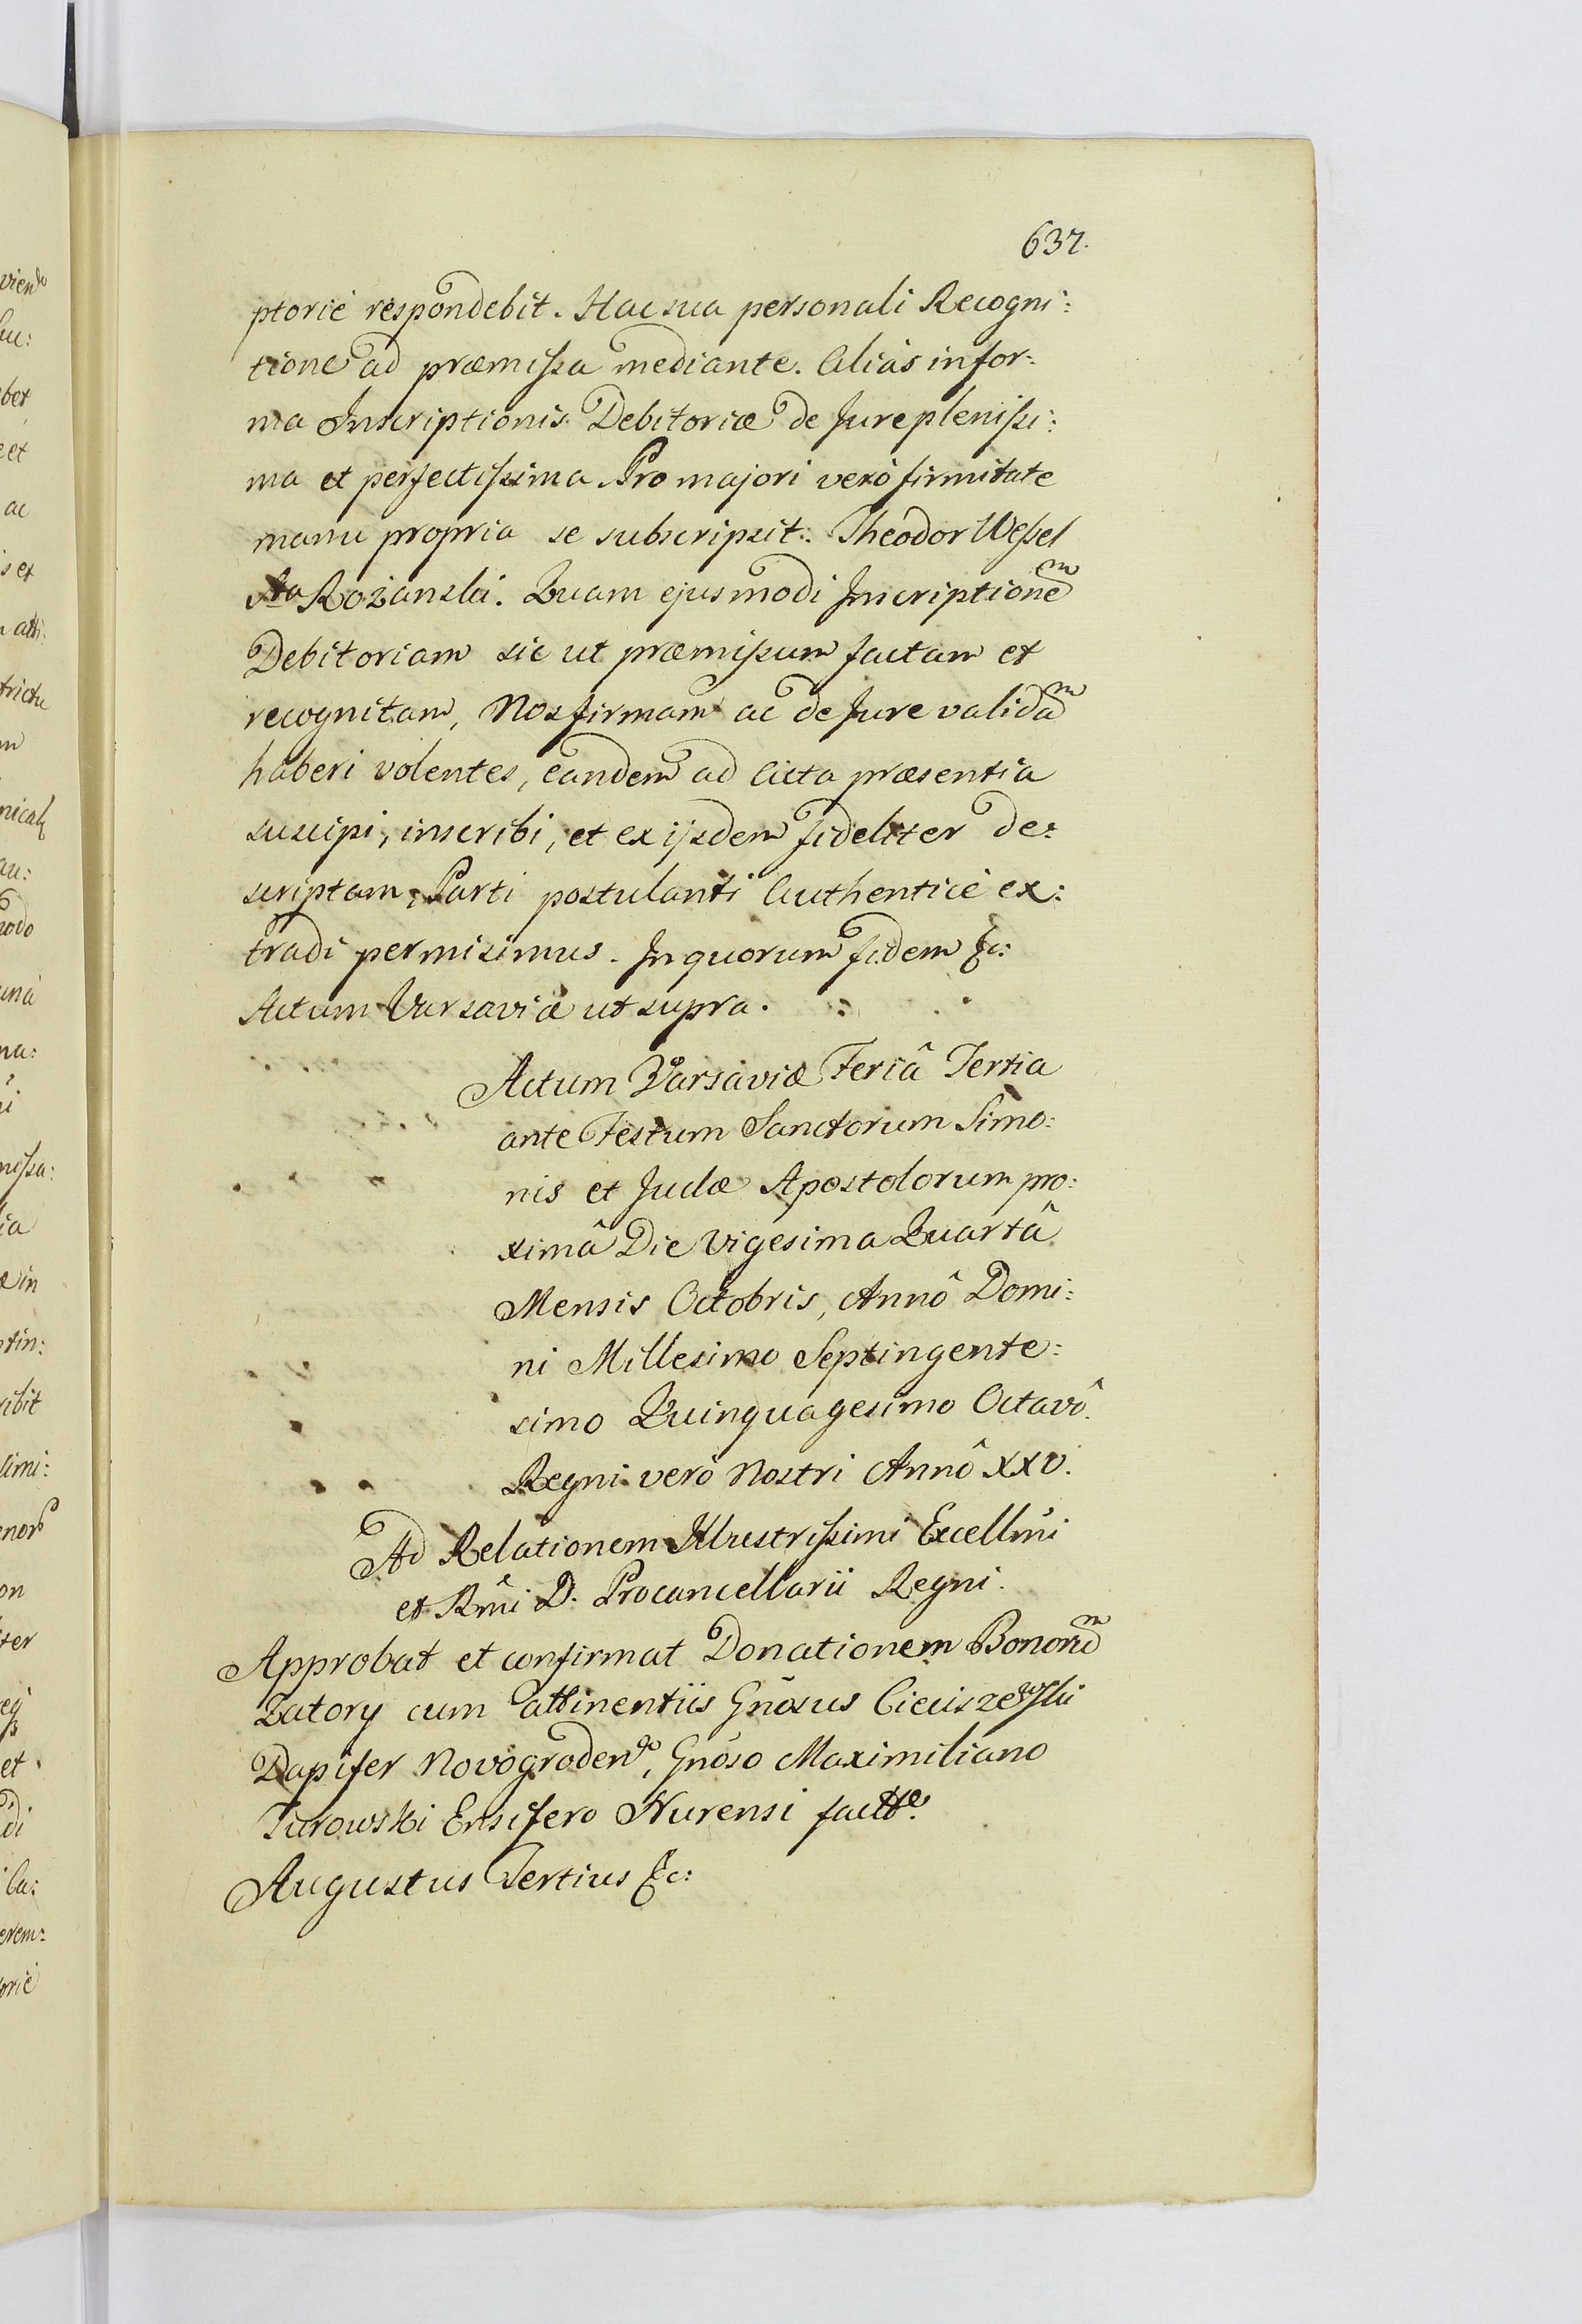 637.
ptorié respondebit. Hac sua personali Recogni:
tione ad præmissa mediante. Aliàs in for:
ma Inscriptionis Debitoriæ de Jure plenissi:
ma et perfectissima Pro majori verò firmitate
manu propria se subscripsit: Theodor Wessel
Sta Rożanski. Quam ejusmodi Inscriptionem
Debitoriam sic ut præmissum factam et
recognitam, Nos firmam ac de Jure validam
haberi volentes, eandem ad Acta præsentia
suscipi, inscribi, et ex ijsdem fideliter de:
scriptam, Parti postulanti Authenticè ex:
tradi permisimus. In quorum fidem &c:
Actum Varsaviæ ut supra.
Actum Varsaviæ Feriâ Tertia
ante Festum Sanctorum Simo:
nis et Judæ Apostolorum pro:
ximâ Die Vigesima Quartâ
Mensis Octobris, Annô Domi:
ni Millesimo Septingente:
simo Quinquagesimo Octavô.
Regni verò Nostri Annô XXV.
Ad Relationem Illustrissimi Excellmi
et Rmi D. Procancellarii Regni.
Approbat et confirmat Donationem Bonorum
Zatory cum attinentiis Gnosus Cieciszewski
Dapifer Novogroden, Gnoso Maximiliano
Turowski Ensifero Nurensi
Augustus Tertius &c: